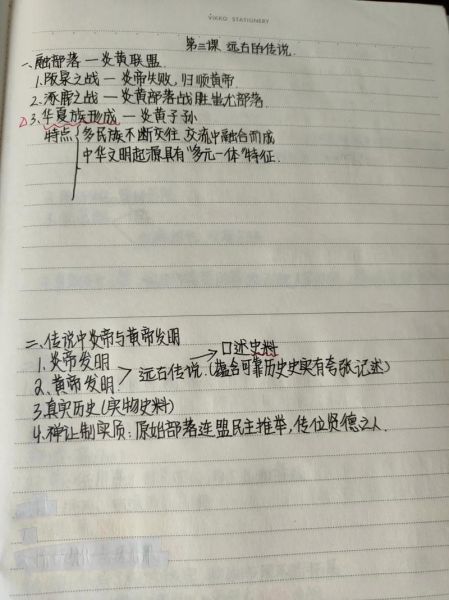 VIKKO STATIONERY
第三课 远古的传说
一、融部落—炎黄联盟
1.阪泉之战—炎帝失败,归顺黄帝
2.涿鹿之战—炎黄部落战胜蚩尤部落
△3.华夏族形成—炎黄子孙
特点{多民族不断交往 交流中融合而成
中华文明起源具有"多元一体"特征.
二、传说中炎帝与黄帝发明
→口述史料
1.炎帝发明
2.黄帝发明 > 远古传说.(蕴含可靠历史史实有夸张记述)
3.真实历史(实物史料)
4.禅让制实质:原始部落连盟民主推举,传位贤德之人.